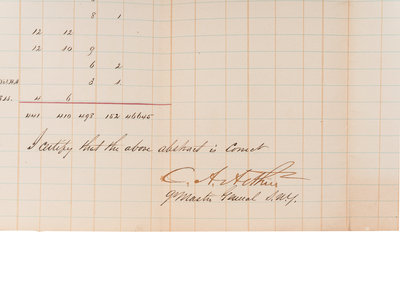 8 1
12 12
12 10 9
6 2
3 1
4 6
441 410 498 152 46645
I certify that the above abstract is correct
C. A. Arthur
Qr Master General S.N.Y.